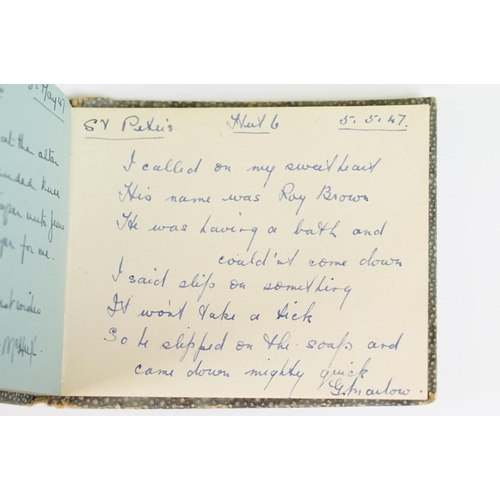 5. May 47
at the altar
bended knee
for me.
wishes
St Peter's Hut 6 5.5.47.
I called on my sweetheart
His name was Roy Brown
He was having a bath and
couldn't come down
I said slip on something
It won't take a tick
So he slipped on the soap and
came down mighty quick
G. Marlow.